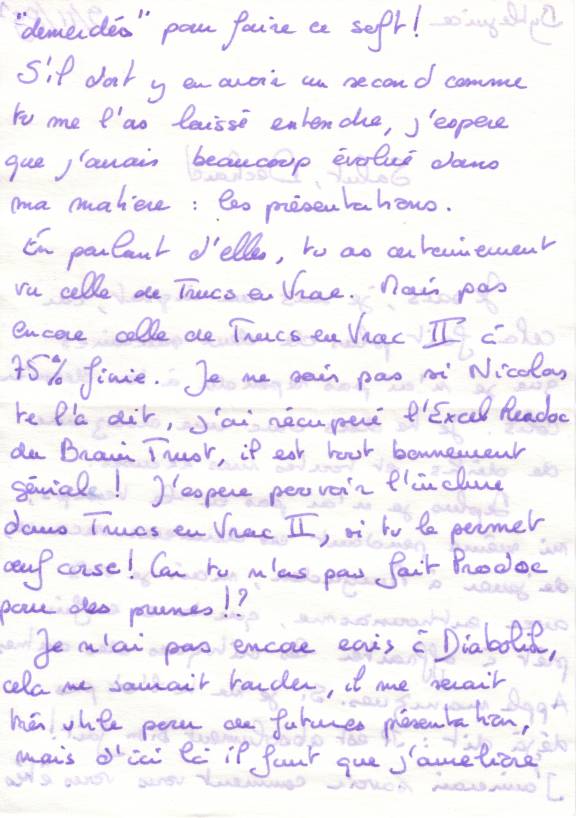 "demerdés" pour faire ce soft !
S'il doit y en avoir un second comme
tu me l'as laissé entendre, j'espere
que j'aurais beaucoup évolué dans
ma matière : les présentations.
En parlant d'elles, tu as certainement
vu celle de Trucs en Vrac. Mais pas
encore celle de Trucs en Vrac II à
75% finie. Je ne sais pas si Nicolas
te l'a dit, j'ai récupéré l'Excel Readoc
du Brain Trust, il est tout bonnement
géniale ! J'espere pouvoir l'inclure
dans Trucs en Vrac II, si tu le permet
œuf corse ! Car tu n'as pas fait Prodoc
pour des prunes !?
Je n'ai pas encore ecris à Diabolik,
cela ne saurait tarder, il me serait
très utile pour de futures présentation,
mais d'ici là il faut que j'améliore